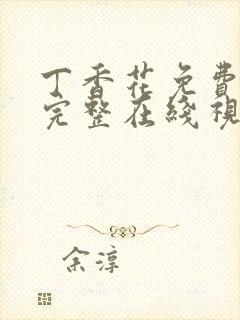 丁香花免費
完整在綫視
余淳